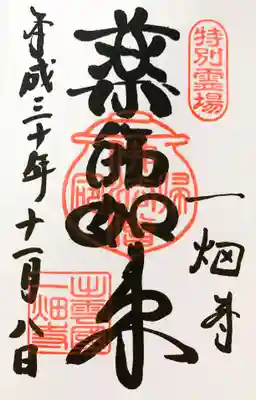 特別霊場
一畑寺
薬師如来
平成三十年十一月八日
出雲国
一畑寺